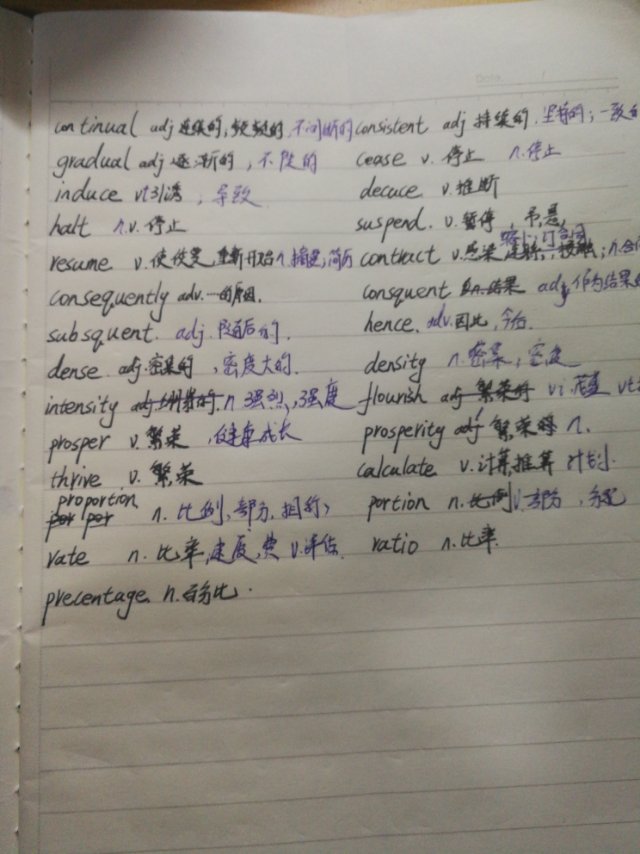 Date
continual adj 连续的,频频的,不间断的 consistent adj 持续的,坚持的;一致的
gradual adj 逐渐的,不陡的 cease v. 停止 n.停止
induce vt引诱,导致 decuce v.推断
halt n.v.停止 suspend. v.暂停 吊,悬
resume v.使恢复,重新开始 n.摘要,简历 contract v.感染 n.合同
consequently adv. consquent adj 作为结果的
subsquent. adj.随后的. hence. adv.因此,今后.
dense adj.密集的,密度大的. density n.密集,密度
intensity n 强烈,强度 flourish adj 繁荣的 vi.
prosper v.繁荣,健康成长 prosperity adj 繁荣 n.
thrive v.繁荣 calculate v.计算,推算 计划.
proportion
por por n.比例,部分, portion n.比例 部分,分配
rate n.比率,速度,费 v.评估. ratio n.比率.
precentage. n.百分比.